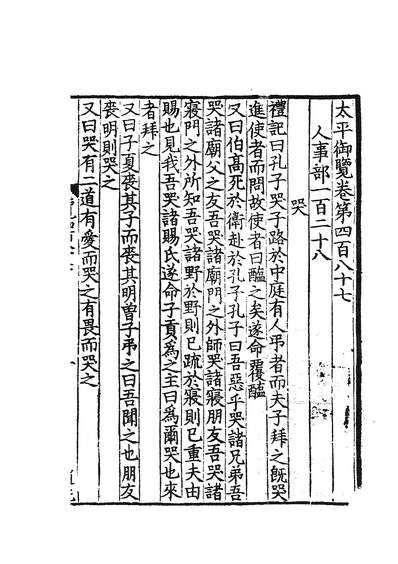 太平御覽卷第四百八十七
人事部一百二十八
哭
禮記曰孔子哭子路於中庭有人弔者而夫子拜之旣哭
進使者而問故使者曰醢之矣遂命覆醢
又曰伯髙死於衛赴於孔子孔子曰吾惡乎哭諸兄弟吾
哭諸廟父之友吾哭諸廟門之外師哭諸寢朋友吾哭諸
寢門之外所知吾哭諸野於野則已䟽於寢則已重夫由
賜也見我吾哭諸賜氏遂命子貢爲之主曰爲爾哭也來
者拜之
又曰子夏喪其子而喪其明曾子弔之曰吾聞之也朋友
喪明則哭之
又曰哭有二道有愛而哭之有畏而哭之